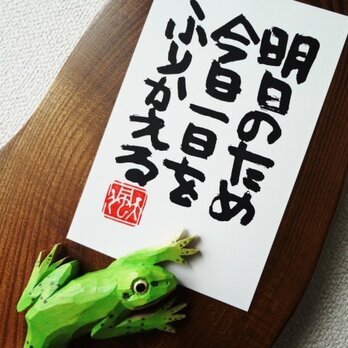 明日のため
今日一日を
ふりかえる